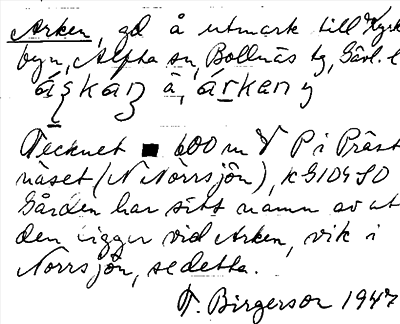 Arken, gd å utmark till Kyrk
byn, Alfta sn, Bollnäs tg, Gävl. l
áşkaņ å, árken y
Tecknet ■ 600 m V P i Präst
näset (N Norrsjön), k G104 SO
Gården har sitt namn av at
den ligger vid Arken, vik i
Norrsjön, se detta.
T. Birgerson 1947